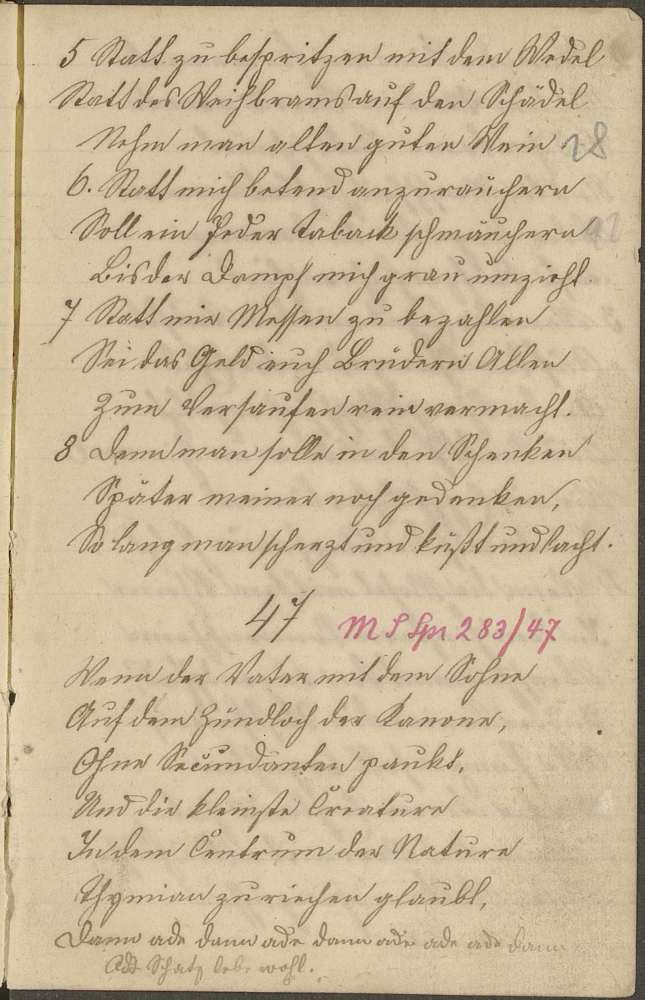 5 Statt zu bespritzen mit dem Wedel
Statt des Weihbrams auf den Schädel
Nehm man alten guten Wein 28
6. Statt mich betend anzuräuchern
Soll ein Jeder Taback schmäuchern
Bis der Dampf mich grau umzieht.
7 Statt mir Messen zu bezahlen
Sei das Geld euch Brüdern Allen
Zum Versaufen rein vermacht.
8 Denn man solle in den Schenken
Später meiner noch gedenken,
So lang man scherzt und küßt und lacht.
47 MS Spr 283/47
Wenn der Vater mit dem Sohne
Auf dem Zündloch der Kanone,
Ohne Secundanten paukt,
Und die kleinste Creature
In dem Centrum der Nature
Thymian zu riechen glaubt,
Dann ade dann ade dann ade ade ade dann
Ade Schatz lebe wohl.